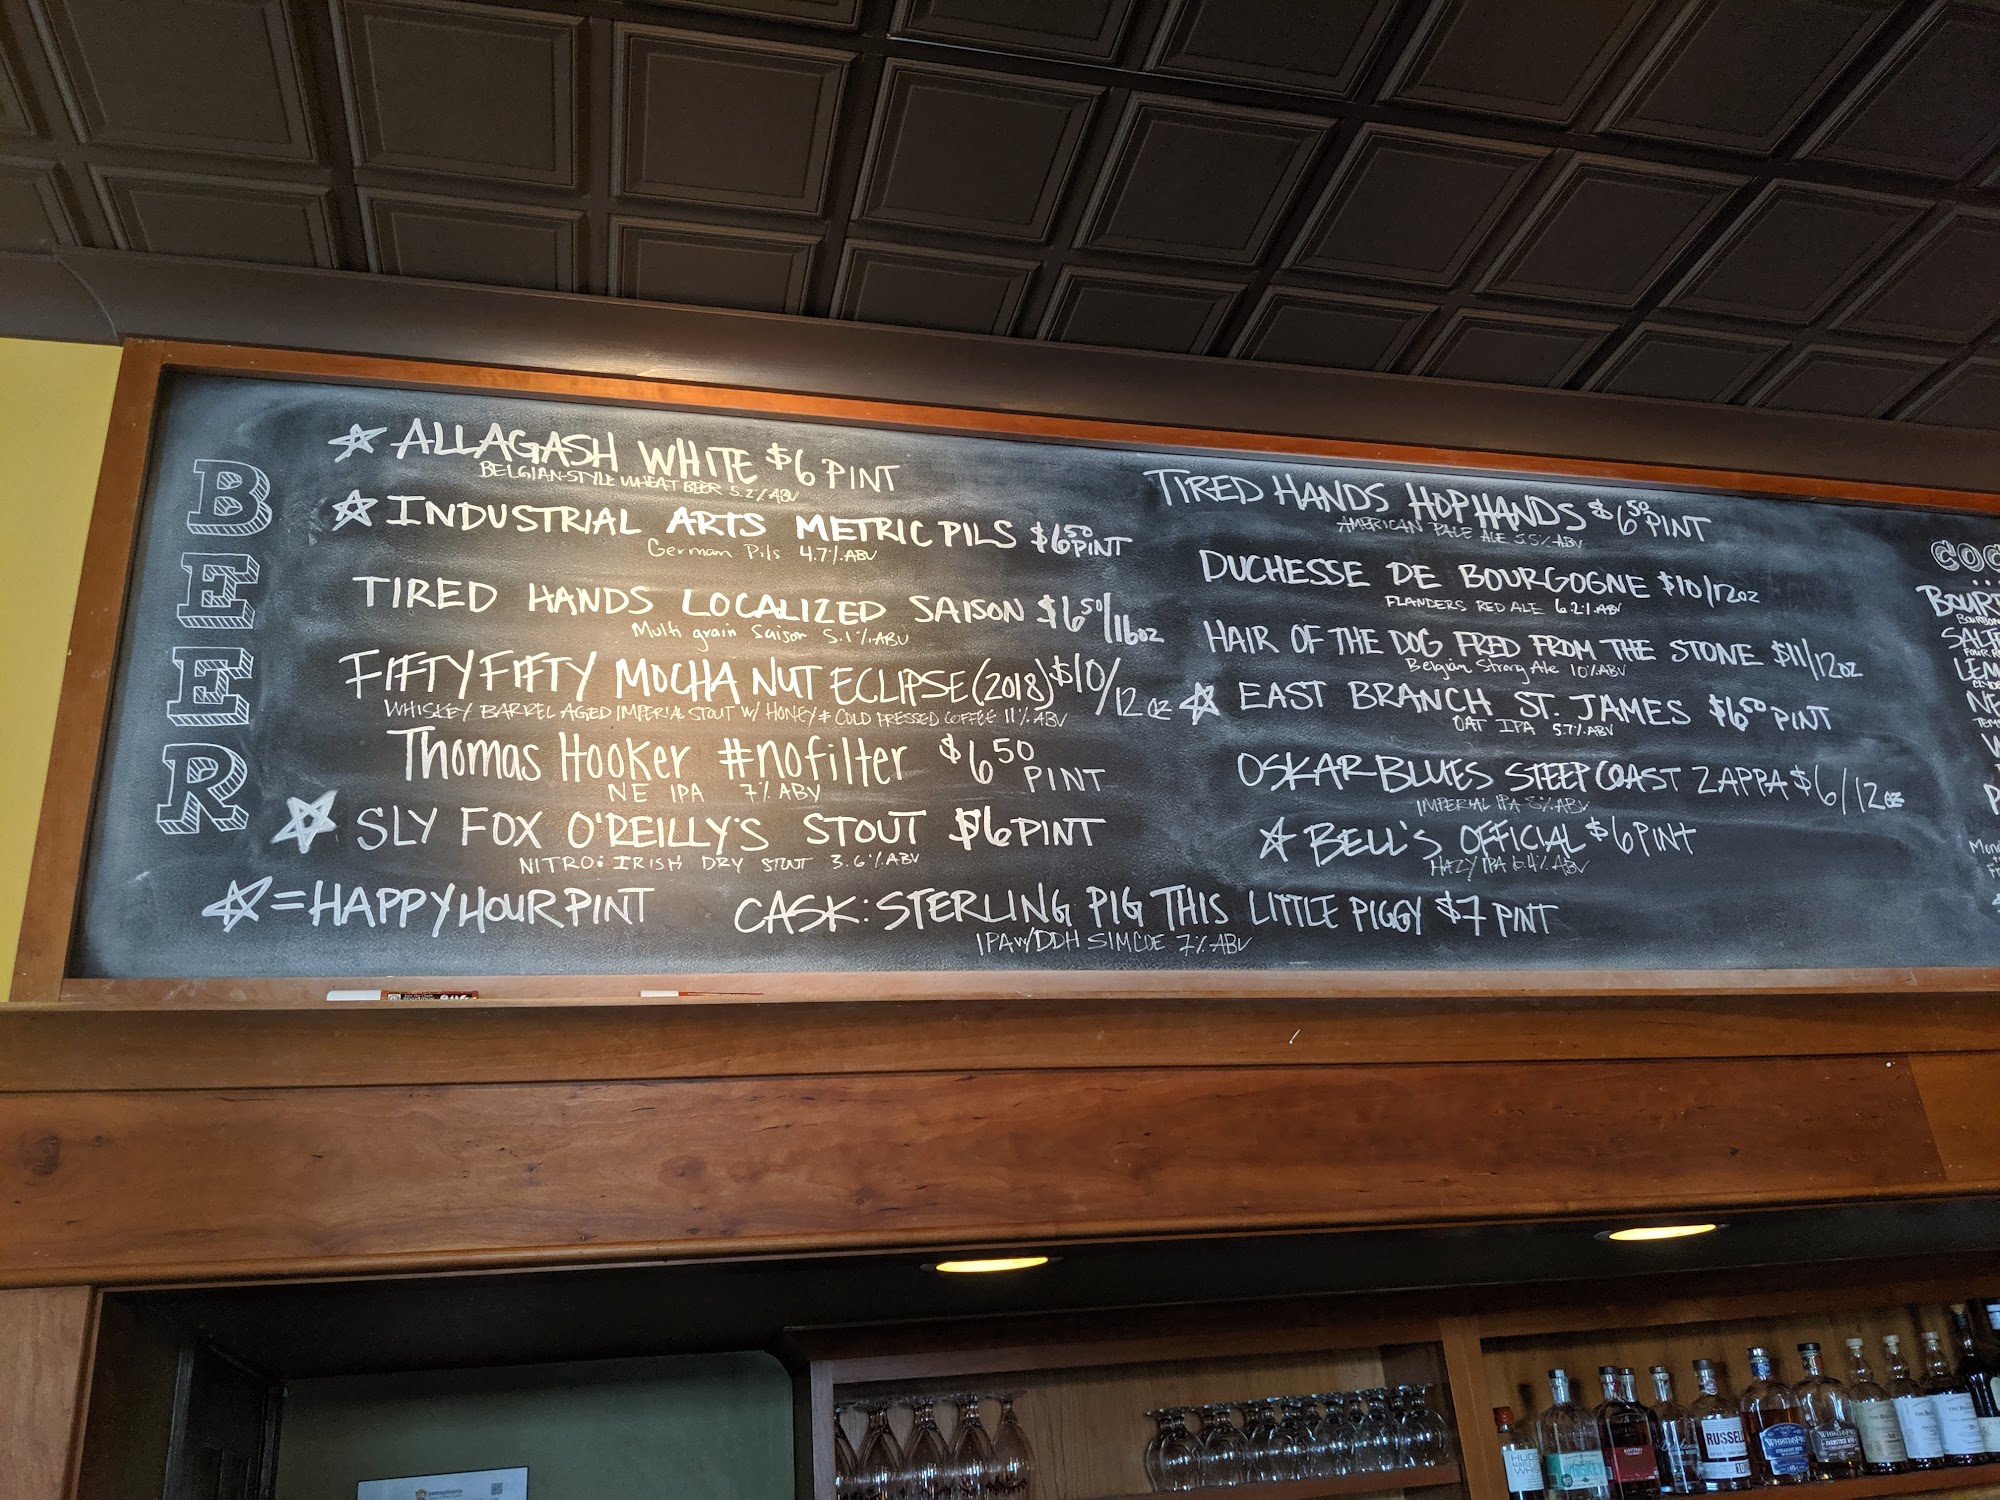 BEER
☆ ALLAGASH WHITE $6 PINT
BELGIAN-STYLE WHEAT BEER 5.2% ABV
☆ INDUSTRIAL ARTS METRIC PILS $6.50 PINT
German Pils 4.7% ABV
TIRED HANDS LOCALIZED SAISON $6.50/16oz
Multi grain Saison 5.1% ABV
FIFTYFIFTY MOCHA NUT ECLIPSE (2018) $10/12oz
WHISKEY BARREL AGED IMPERIAL STOUT W/ HONEY & COLD PRESSED COFFEE 11% ABV
Thomas Hooker #nofilter $6.50 PINT
NE IPA 7% ABV
☆ SLY FOX O'REILLY'S STOUT $6 PINT
NITRO: IRISH DRY STOUT 3.6% ABV
☆ = HAPPY HOUR PINT
TIRED HANDS HOPHANDS $6.50 PINT
AMERICAN PALE ALE 5.5% ABV
DUCHESSE DE BOURGOGNE $10/12oz
FLANDERS RED ALE 6.2% ABV
HAIR OF THE DOG FRED FROM THE STONE $11/12oz
Belgian Strong Ale 10% ABV
☆ EAST BRANCH ST. JAMES $6.50 PINT
OAT IPA 5.7% ABV
OSKAR BLUES STEEP COAST ZAPPA $6/12oz
IMPERIAL IPA 8% ABV
☆ BELL'S OFFICIAL $6 PINT
HAZY IPA 6.4% ABV
CASK: STERLING PIG THIS LITTLE PIGGY $7 PINT
IPA W/ DDH SIMCOE 7% ABV
COC
BOUR
BOURBON
LEM
RUSSELL
pennsylvania